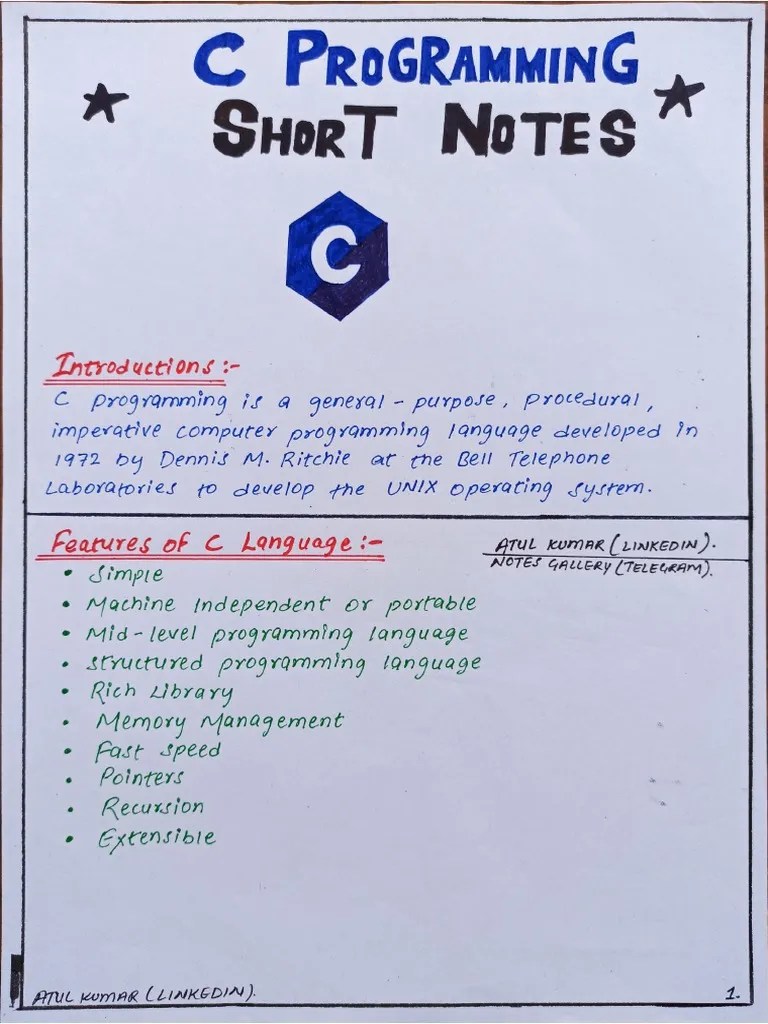 C PROGRAMMING
SHORT NOTES
C
Introductions :-
C programming is a general - purpose, procedural,
imperative computer programming language developed in
1972 by Dennis M. Ritchie at the Bell Telephone
Laboratories to develop the UNIX operating system.
Features of C Language :-
ATUL KUMAR (LINKEDIN).
NOTES GALLERY (TELEGRAM).
• Simple
• Machine Independent or portable
• Mid-level programming language
• structured programming language
• Rich Library
• Memory Management
• Fast speed
• Pointers
• Recursion
• Extensible
ATUL KUMAR (LINKEDIN).
1.